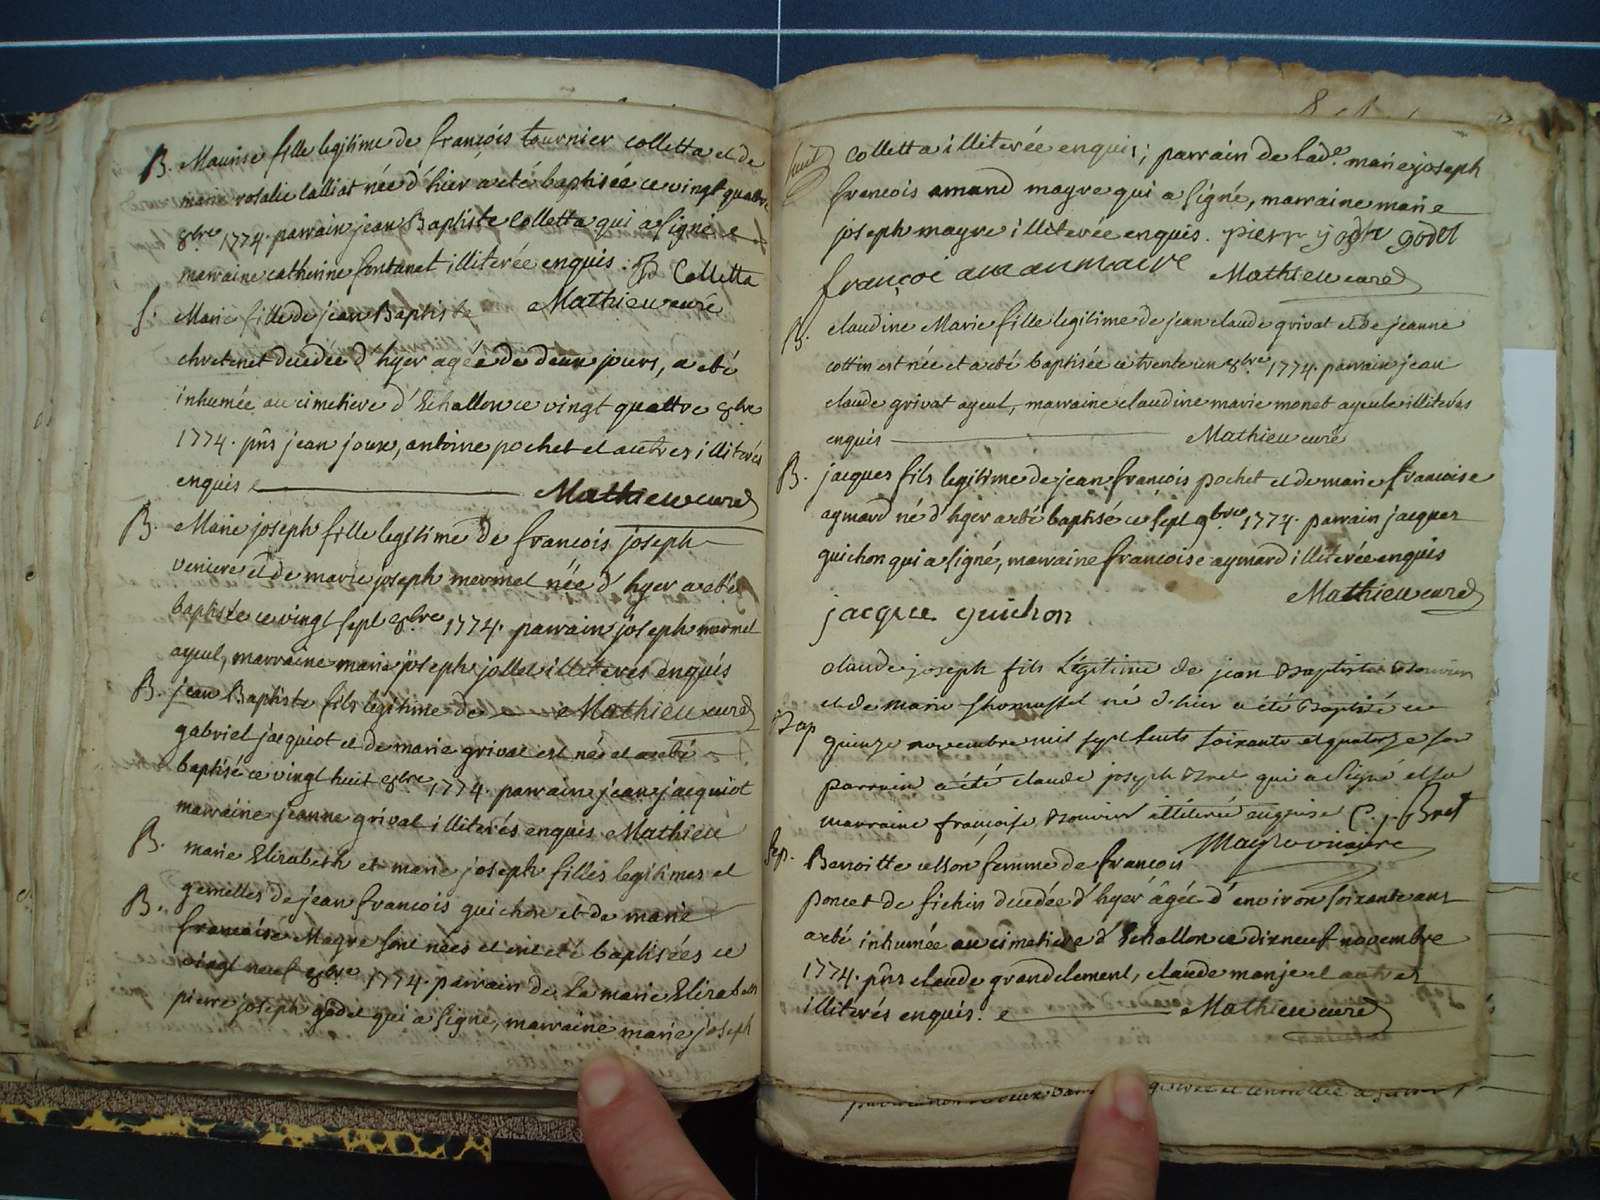 B. Maurise fille legitime de françois tournier colletta et de
marie rosalie lalliat née d'hier a eté baptisée ce vingt quattre
8bre 1774. parrain jean Baptiste Colletta qui a signé e
marraine catherine fontanet illiterée enquis. Colletta
S. Marie fille de jean Baptiste Mathieu curé
chretenet decédée d'hyer agée de deux jours, a eté
inhumée au cimetiere d'Echallon ce vingt quattre 8bre
1774. pñs jean joux, antoine pochet et autres illiterés
enquis Mathieu curé
B. Marie joseph fille legitime de francois joseph
veniere et de marie joseph mermet née d'hyer a eté
baptisée ce vingt sept 8bre 1774. parrain joseph mermet
ayeul, marraine marie joseph jollet illiterés enquis
B. jean Baptiste fils légitime de Mathieu curé
gabriel jacquiot et de marie grivat est né et a eté
baptisé ce vingt huit 8bre 1774. parrain jean jacquiot
marraine jeanne grival illiterés enquis Mathieu
B. marie Elizabeth et marie joseph filles legitimes et
B. gemelles de jean francois guichon et de marie
francoise Mayre sont nées et ont eté baptisées ce
vingt neuf 8bre 1774. parrain de la marie Elizabeth
pierre joseph godet qui a signé, marraine marie joseph
Colletta illiterée enquis; parrain de lade. marie joseph
francois amand mayre qui a signé, marraine marie
joseph mayre illiterée enquis. godet
françoi amanmaire Mathieu curé
B. claudine Marie fille legitime de jean claude grivat et de jeanne
cottin est née et a eté baptisée ce trente un 8bre 1774. parrain jean
claude grivat ayeul, marraine claudine marie monet ayeule illiterés
enquis Mathieu curé
B. jacques fils legitime de jean françois pochet et de marie francoise
aymard né d'hyer a eté baptisé ce sept 9bre 1774. parrain jacques
guichon qui a signé, marraine francoise aymard illiterée enquis
Mathieu curé
jacque guichon
claude joseph fils Légitime de jean Baptiste
et de marie né d'hier a été Baptisé ce
Bap quinze novembre mil sept cents soixante et quatorze son
parrain a été claude joseph Bret qui a signé et sa
marraine françoise illiterée enquise C. j. Bret
Sep. Benoitte femme de françois
poncet de sichin decédée d'hyer âgée d'environ soixante ans
a eté inhumée au cimetiere d'Echallon ce dixneuf novembre
1774. pñs claude grandclement, claude manjet autres
illiterés enquis. Mathieu curé